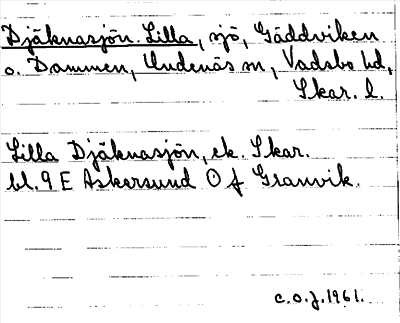 Djäknasjön Lilla, sjö, Gäddviken
o. Dammen, Undenäs sn, Vadsbo hd,
Skar. l.
Lilla Djäknasjön, ek. Skar.
bl. 9 E Askersund O f Granvik.
c.o.j. 1961.